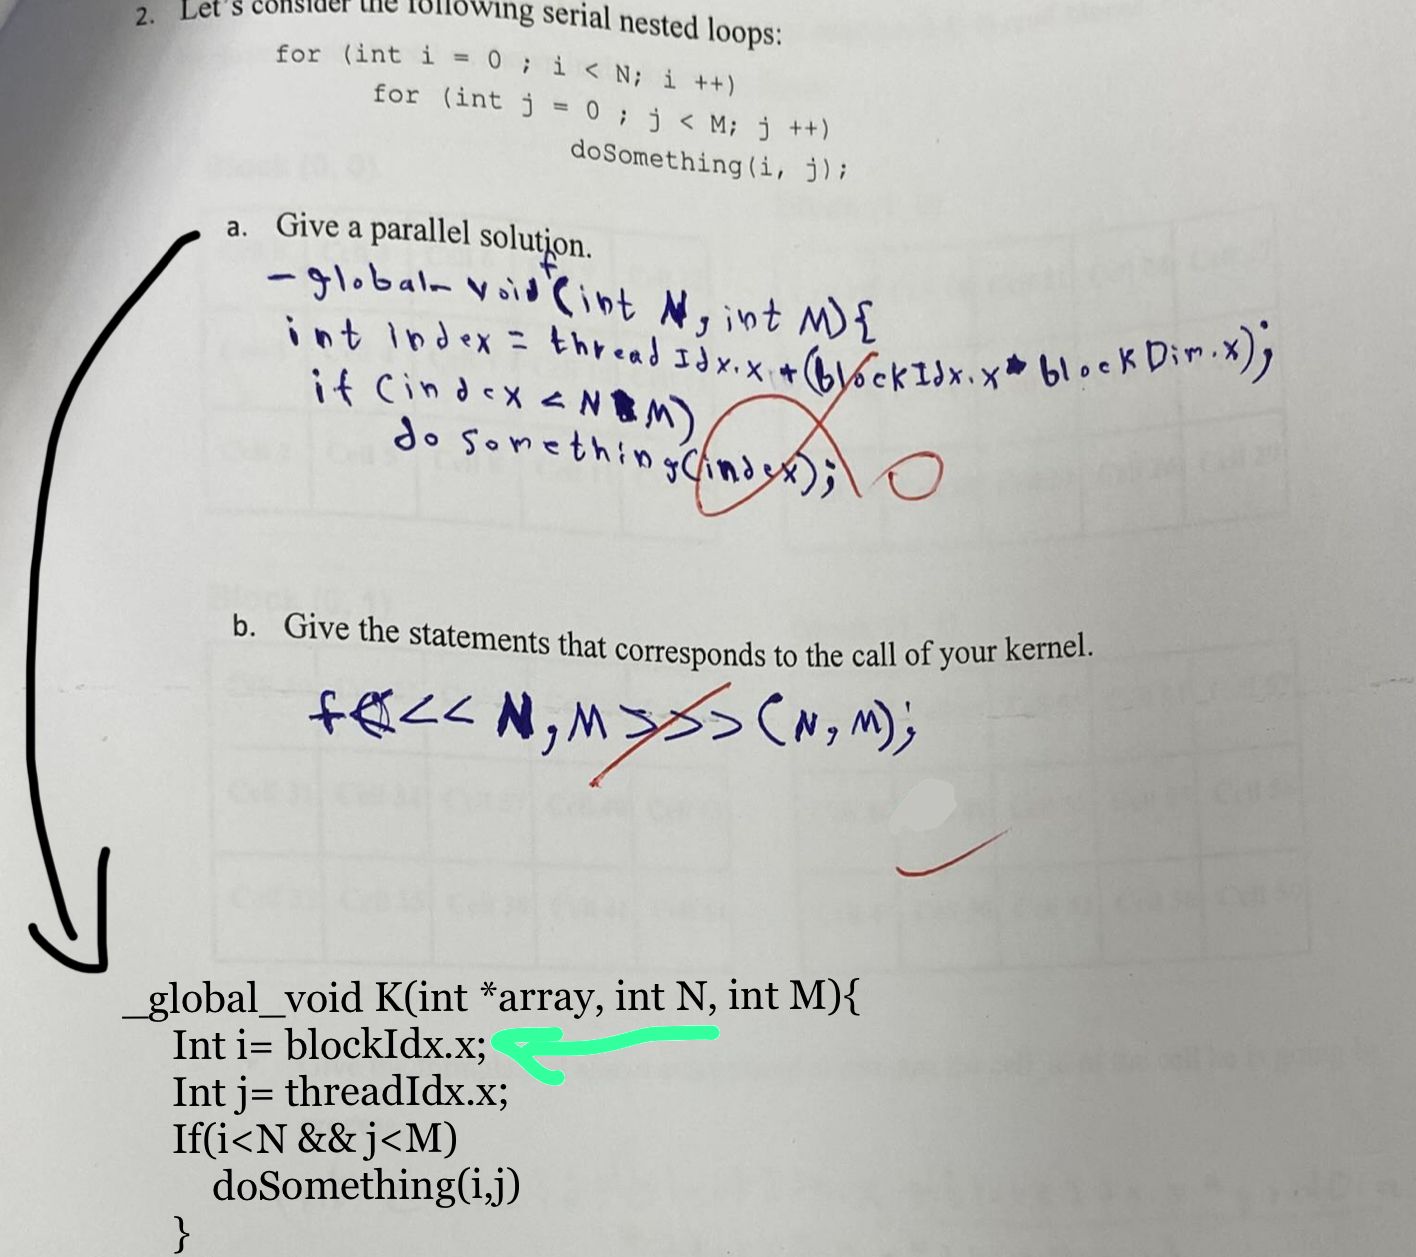 2. Let's consider the following serial nested loops:
for (int i = 0 ; i < N; i ++)
for (int j = 0 ; j < M; j ++)
doSomething(i, j);
a. Give a parallel solution.
-global- void f(int N, int M){
int index = threadIdx.x + (blockIdx.x * blockDim.x);
if (index < N M)
do something(index);
0
b. Give the statements that corresponds to the call of your kernel.
f <<< N, M >>> (N, M);
_global_void K(int *array, int N, int M){
Int i= blockIdx.x;
Int j= threadIdx.x;
If(i<N && j<M)
doSomething(i,j)
}